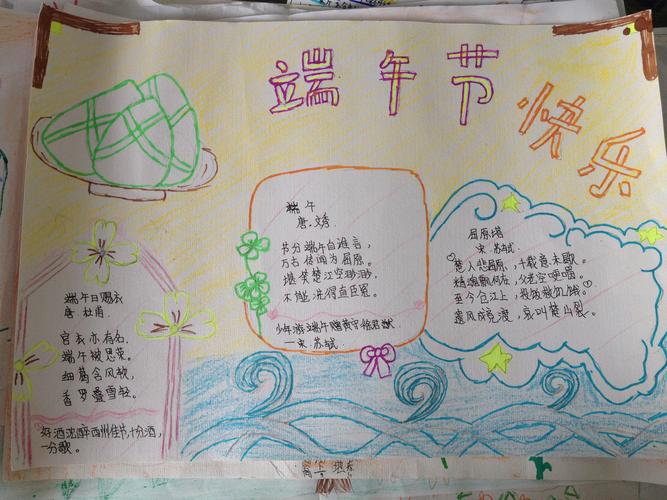 端午节
快乐
端午
唐.文秀
节分端午自谁言,
万古传闻为屈原。
堪笑楚江空渺渺,
不能洗得直臣冤。
少年游.端午赠黄守徐君猷
—宋.苏轼
屈原塔
宋.苏轼
楚人悲屈原,千载意未歇。
精魂飘何在,父老空哽咽。
至今仓江上,投饭救饥渴。
遗风成竞渡,哀叫楚山裂。
端午日赐衣
唐.杜甫
宫衣亦有名,
端午被恩荣。
细葛含风软,
香罗叠雪轻。
好酒浓醉西州佳节,十分酒,
一分歌。